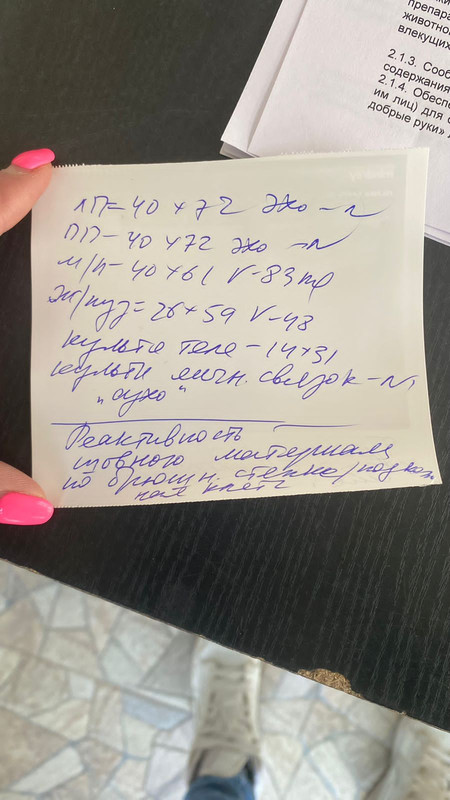 препара
животно
влекущих
2.1.3. Сооб
содержания
2.1.4. Обеспе
им лиц) для с
добрые руки» 
ЛП=40×72 эхо-N
ПП-40×72 эхо-N
М/п-40×61 V-83 мл
Ж/пуз=26×59 V-48
культя тела-14×31
культи яичн. связок-N,
"сухо"
Реактивность
шовного материала
по брюшн. стенке/подкож
ная клетч